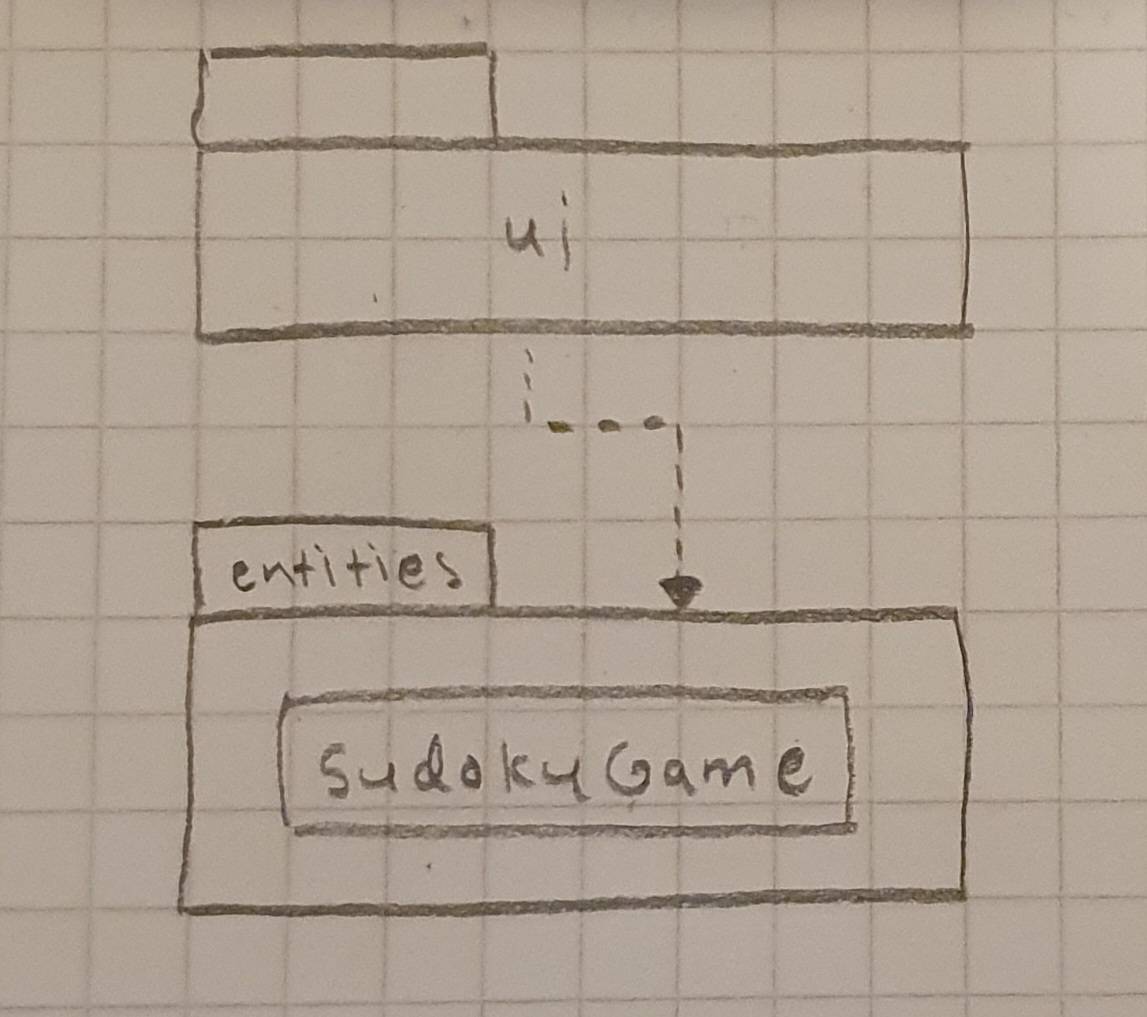 ui
entities
SudokuGame